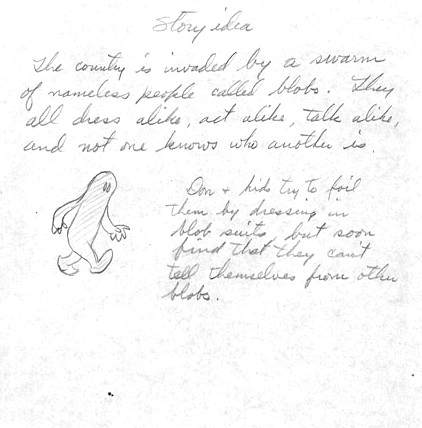 Story idea
The country is invaded by a swarm
of nameless people called blobs. They
all dress alike, act alike, talk alike,
and not one knows who another is.
Don + kids try to foil
them by dressing in
blob suits, but soon
find that they can't
tell themselves from other
blobs.